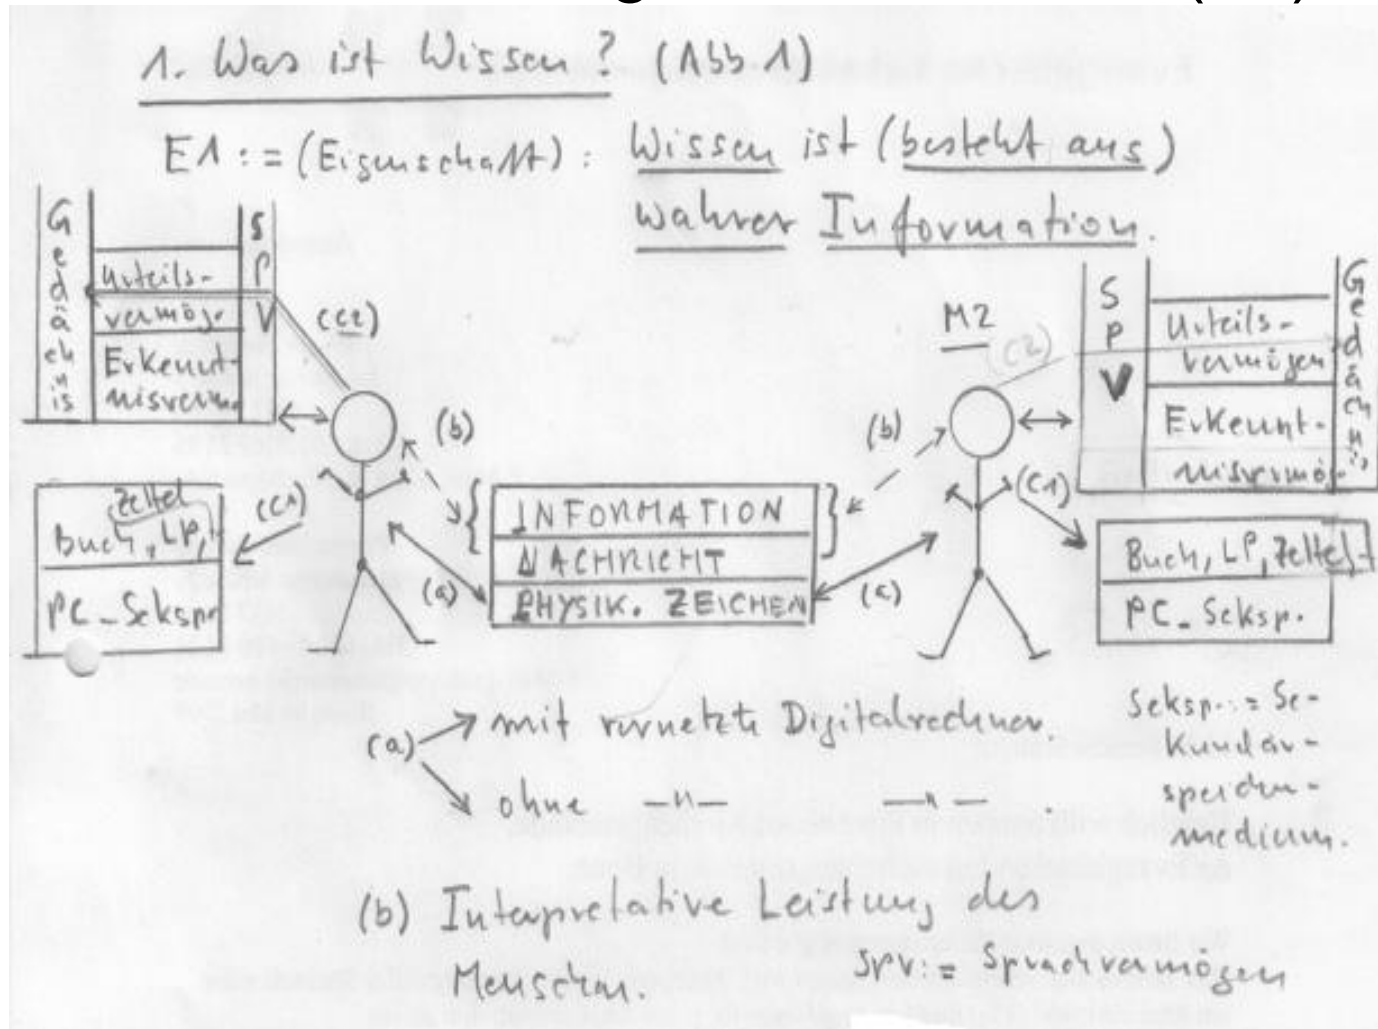 1. Was ist Wissen? (Abb. 1)
E1 := (Eigenschaft) : Wissen ist (besteht aus)
wahrer Information.
Gedächnis
Urteils-
vermög.
Erkennt-
nisverm.
SPV
(c2)
(b)
Zettel
Buch, LP,
PC-Seksp.
(c1)
(a)
INFORMATION
NACHRICHT
PHYSIK. ZEICHEN
M2
(c2)
(b)
(c1)
(a)
SPV
Urteils-
vermögen
Erkennt-
nisvermög.
Gedächnis
Buch, LP, Zettel
PC-Seksp.
(a) mit vernetzte Digitalrechner.
ohne —"— —"— .
Seksp. := Se-
kundär-
speicher-
medium.
(b) Interpretative Leistung des
Menschen.
SPV := Sprachvermögen